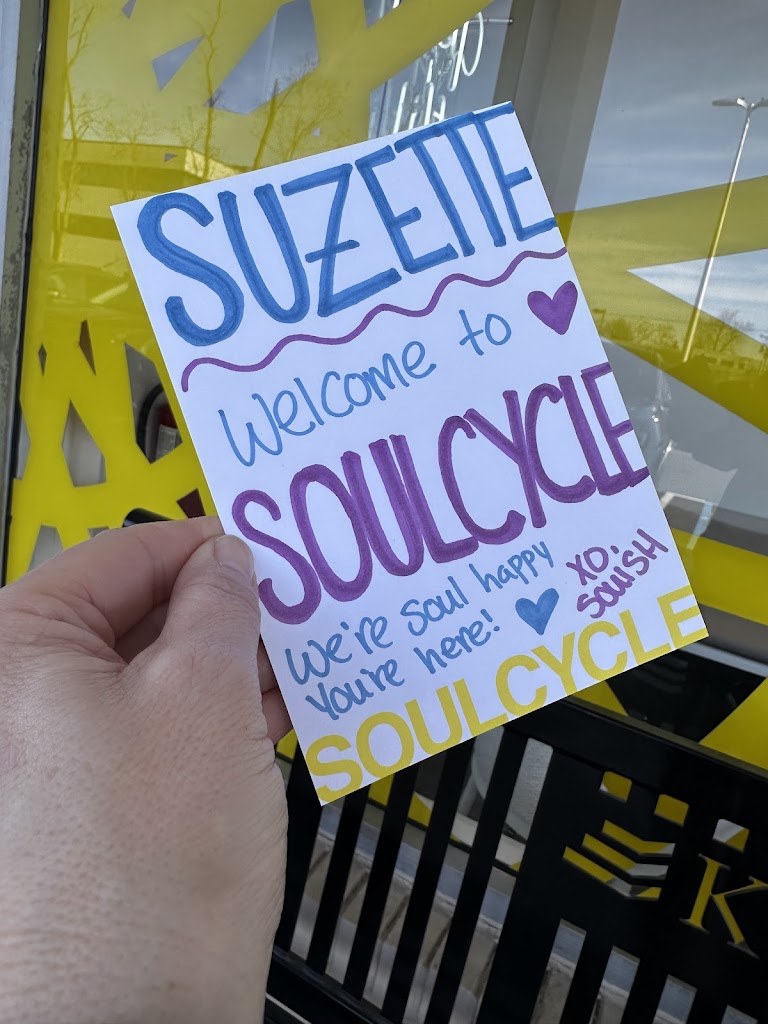 SUZETTE
Welcome to
SOULCYCLE
We're soul happy
You're here!
XO,
SQUISH
SOULCYCLE
K